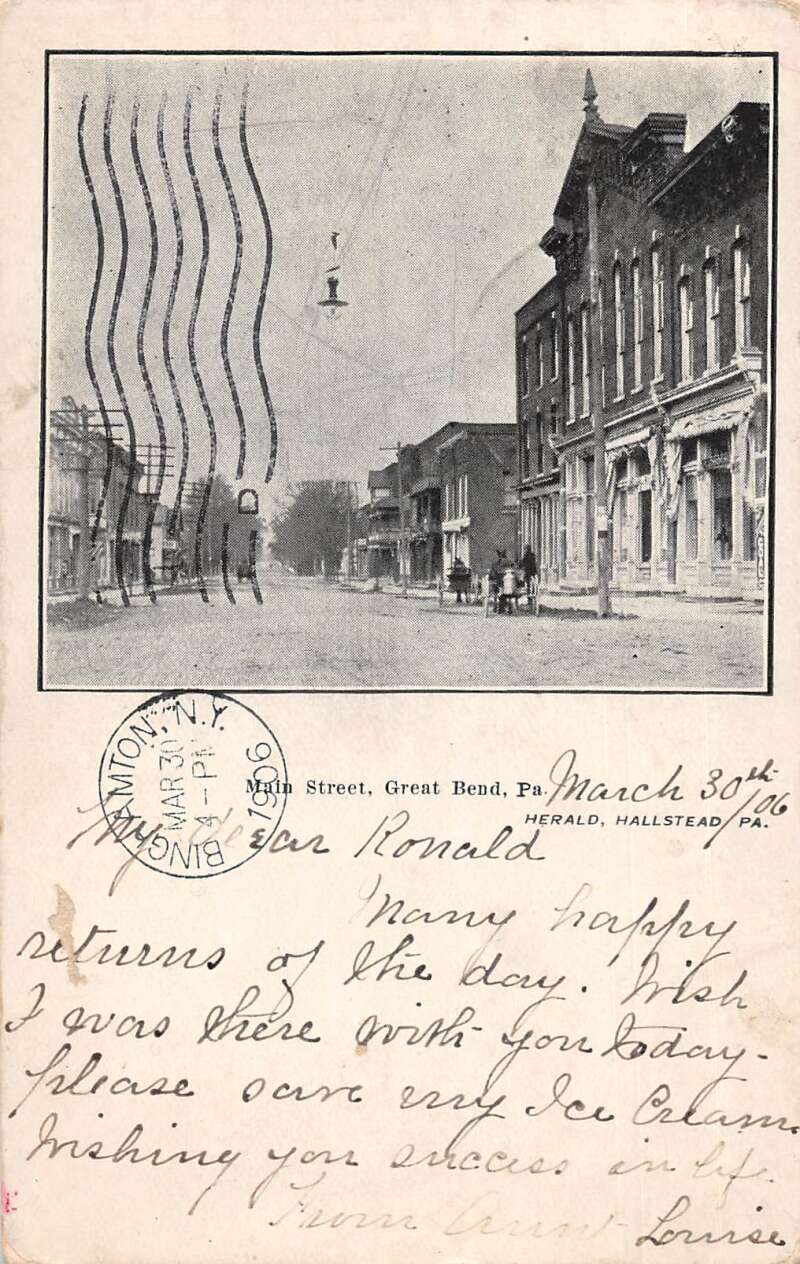 D
BINGHAMTON, N.Y.
MAR 30
4-PM
1906
Main Street, Great Bend, Pa.
March 30th/06
HERALD, HALLSTEAD, PA.
My dear Ronald
Many happy
returns of the day. Wish
I was there with you today-
please save my Ice Cream.
Wishing you success in life
From Aunt Louise